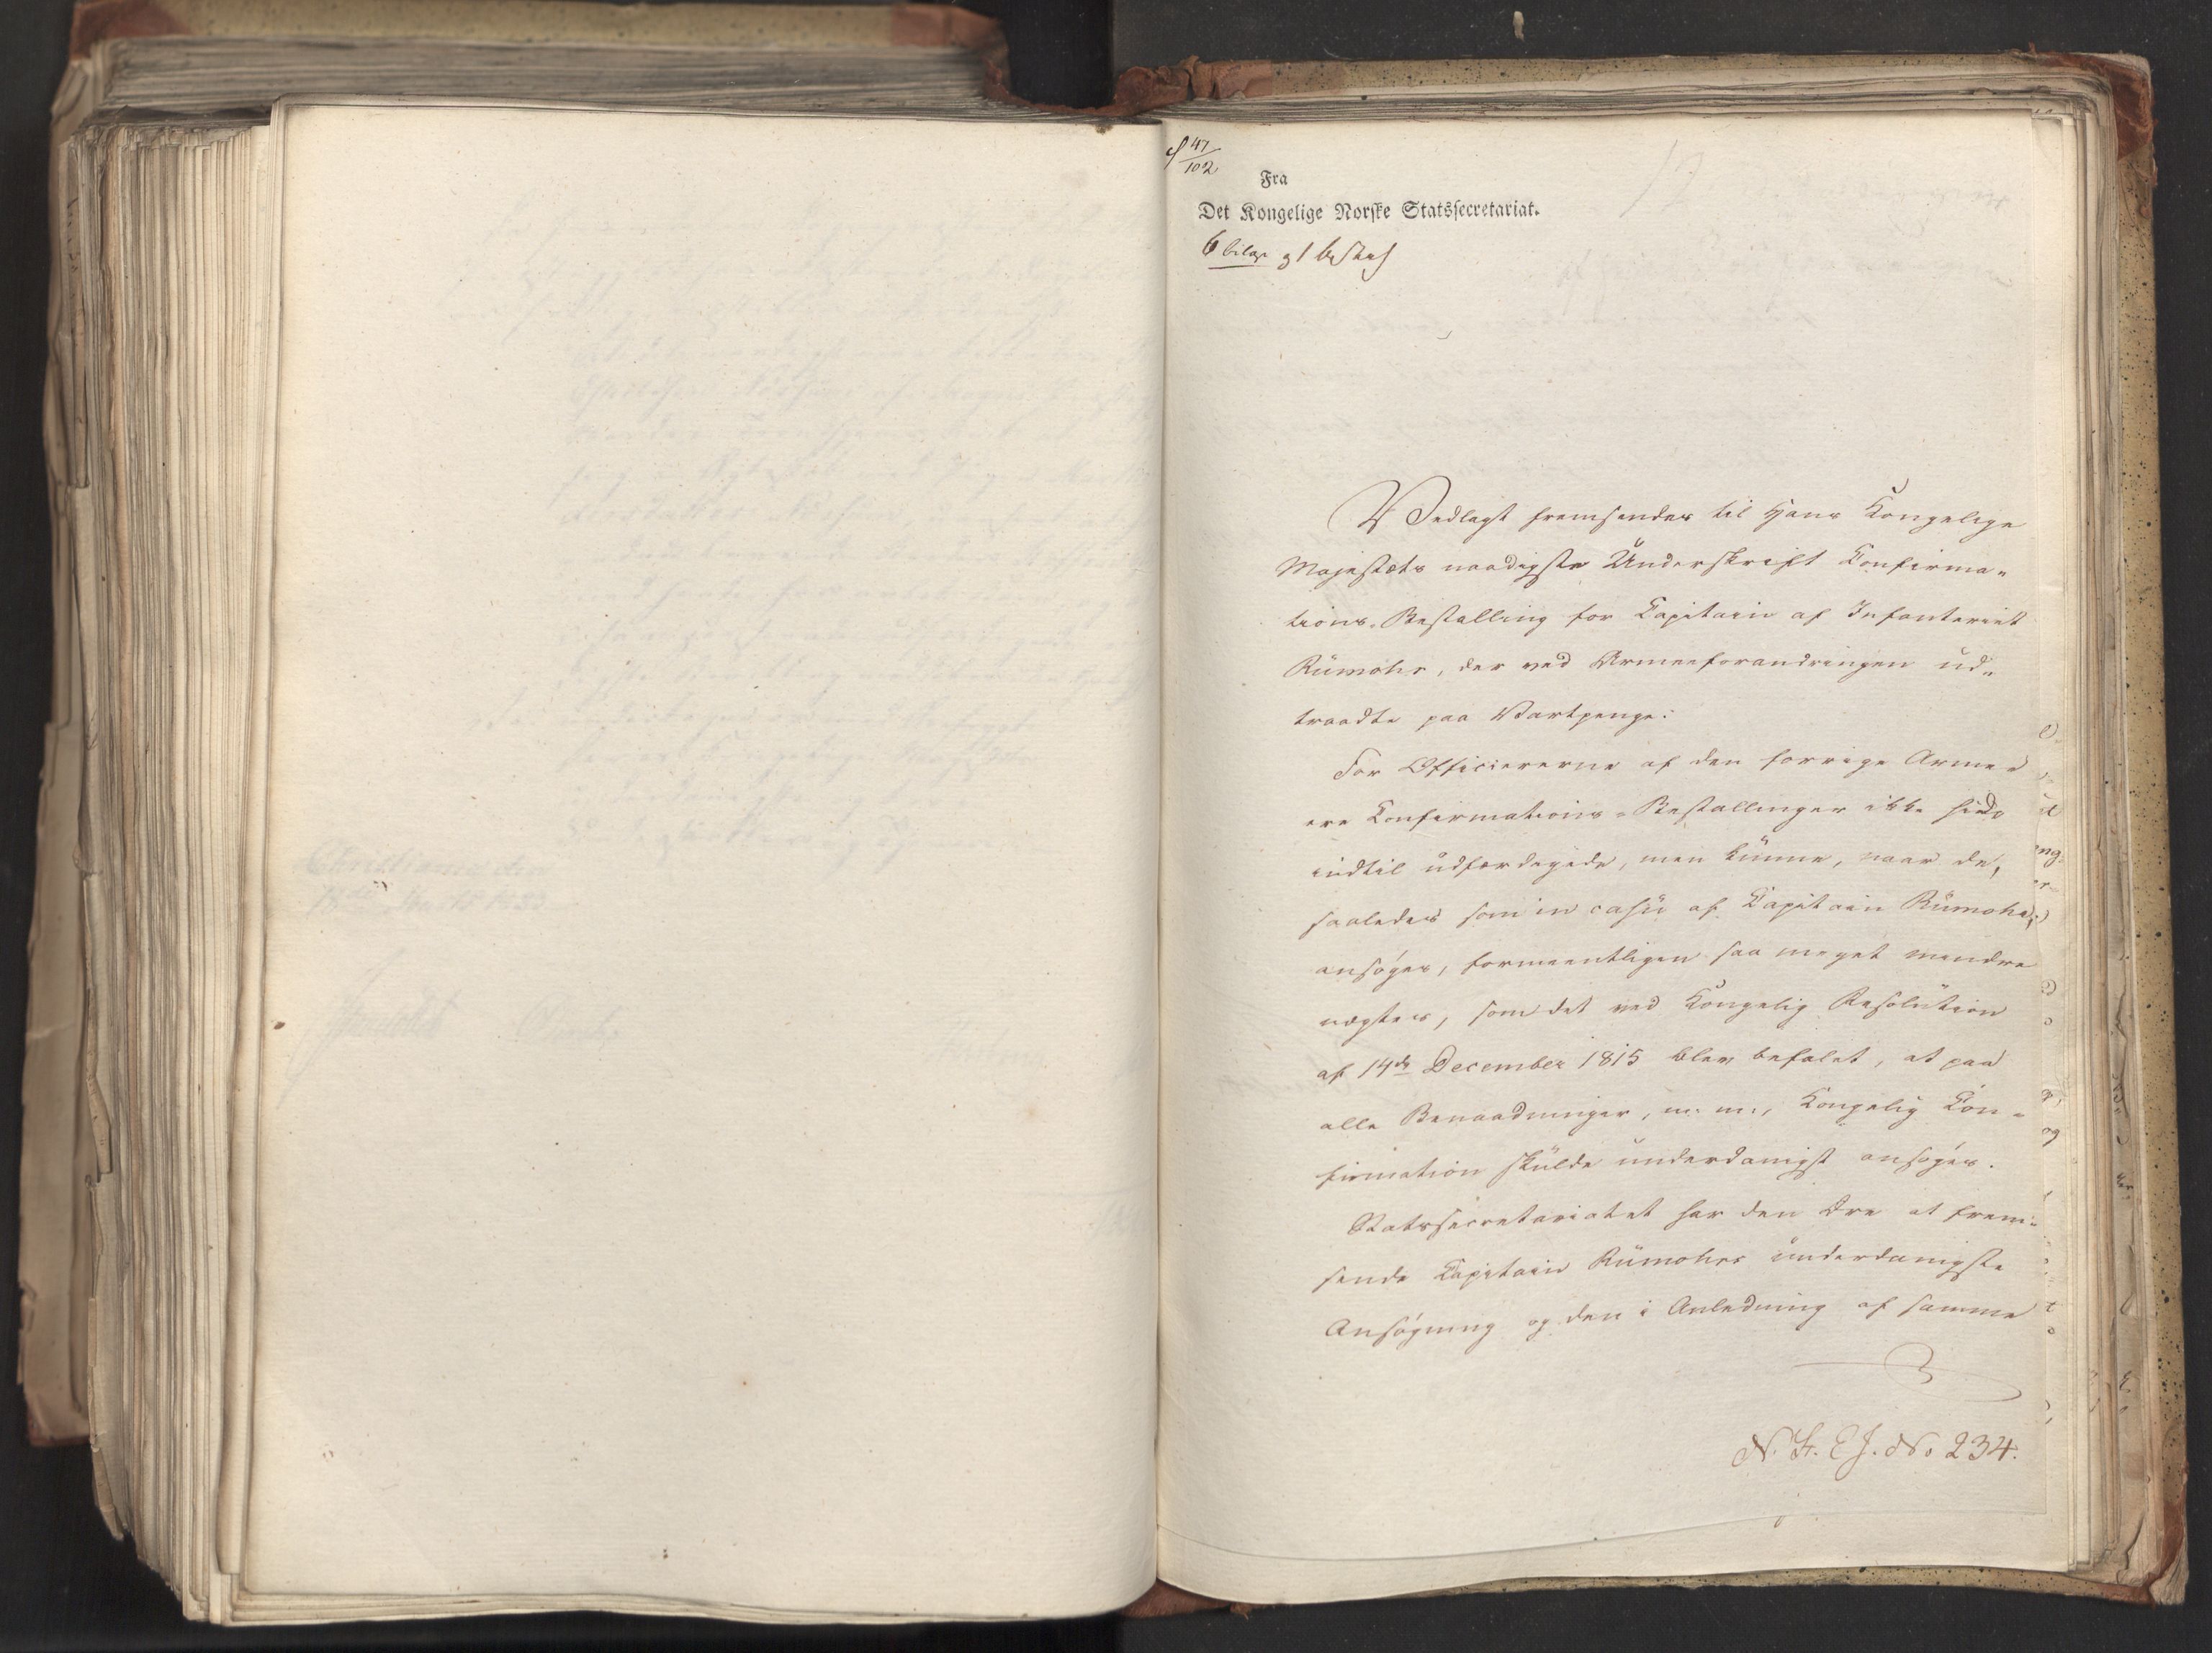 47
102
Fra
Det Kongelige Norske Statssecretariat.
6 bilag og 1
Vedlagt fremsendes til Hans Kongelige
Majestæts naadigste Underskrift Confirma-
tions-Bestalling for Capitain af Infanteriet
Rumohr, der ved Armeeforandringen ud-
traadte paa Vartpenge.
For Officiererne af den forrige Armee
ere Confirmations-Bestallinger ikke hid
indtil udfærdigede, men kunne, naar de,
saaledes som in casu af Capitain Rumohr,
ansøges, formeentligen saa meget mindre
nægtes, som det ved Kongelig Resolution
af 14de December 1815 blev befalet, at paa
alle Benaadninger, m. m., Kongelig Con-
firmation skulde underdanigst ansøges.
Statssecretariatet har den Ære at frem-
sende Capitain Rumohrs underdanigste
Ansøgning og den i Anledning af samme
N. St. E J. No 234.